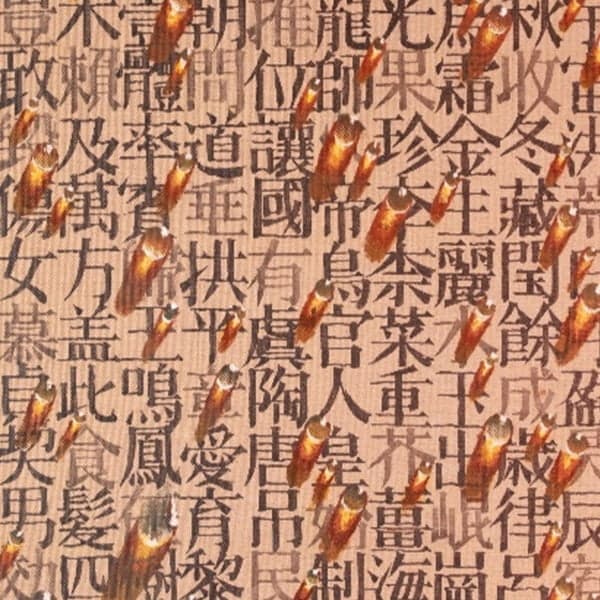 洪荒盈辰
秋收冬藏閏餘成歲律呂
霜金生麗水玉出崗
光果珍李柰菜重芥薑海
龍師帝鳥官人皇始制
推位讓國有虞陶唐吊民
朝問道垂拱平章愛育黎
壹體率賓歸王鳴鳳在樹
木賴及萬方盖此食髮四
豈敢傷女慕貞男效